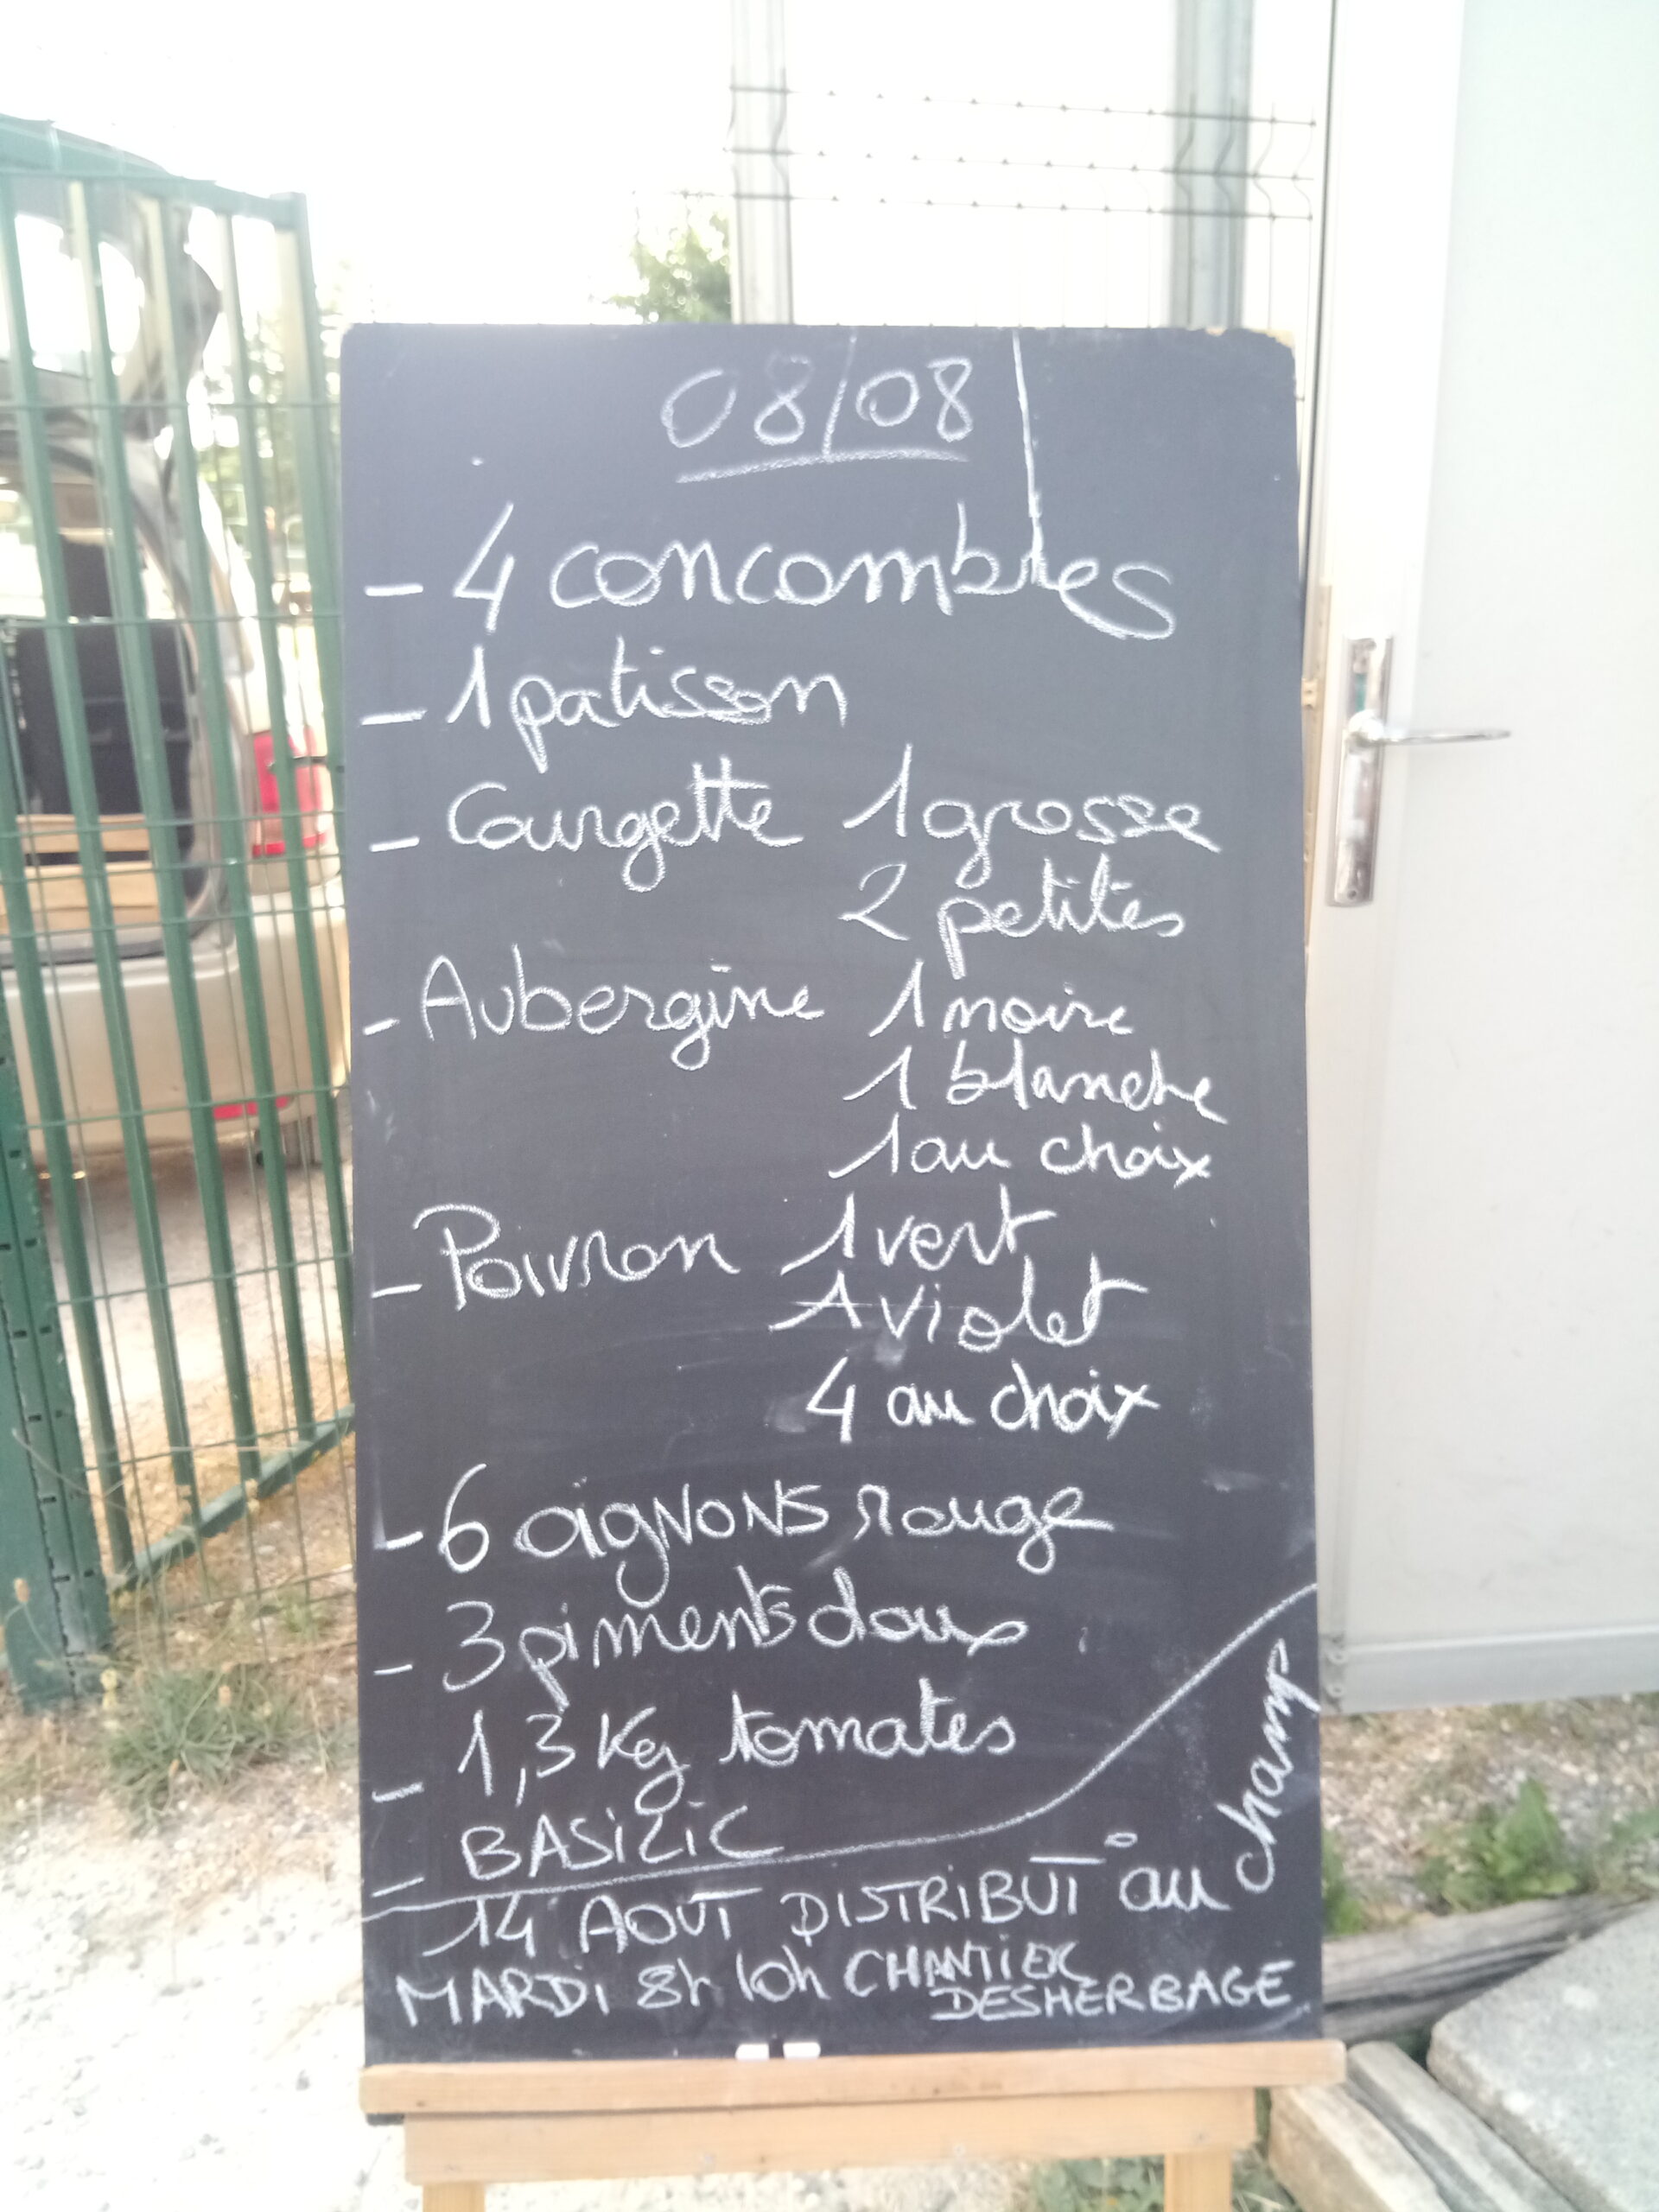 08/08
- 4 concombres
- 1 patisson
- Courgette 1 grosse
2 petites
- Aubergine 1 noire
1 blanche
1 au choix
- Poivron 1 vert
1 violet
4 au choix
- 6 oignons rouge
- 3 piments doux
- 1,3 Kg tomates
- BASiLiC
14 AOUT DISTRIBUT° au champ
MARDi 8h 10h CHANTIER
DESHERBAGE